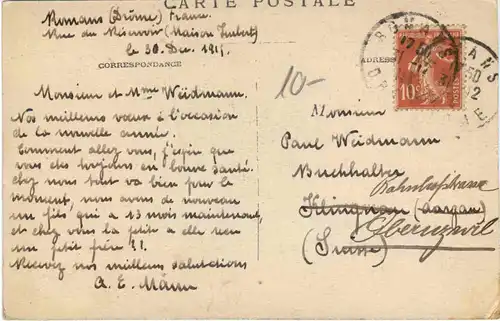 CARTE POSTALE
Romans (Drôme) France.
Rue du Réservoir (Maison Imbert)
le 30 Dec. 191
CORRESPONDANCE
ADRES
10-
10c
POSTES
Monsieur et Mme Weidmann.
Nos meilleurs vœux à l'occasion
de la nouvelle année.
Comment allez vous, j'espère que
vous êtes toujours en bonne santé.
Chez nous tout va bien pour le
moment, nous avons de nouveau
un fils qui a 13 mois maintenant,
et chez vous la petite a elle reçu
un petit frère ?!
Recevez nos meilleurs salutations
A. E. Mann
Monsieur
Paul Weidmann
Buchhalter
Bahnhofstrasse
Klingnau (Aargau)
Oberuzwil
(Suisse)